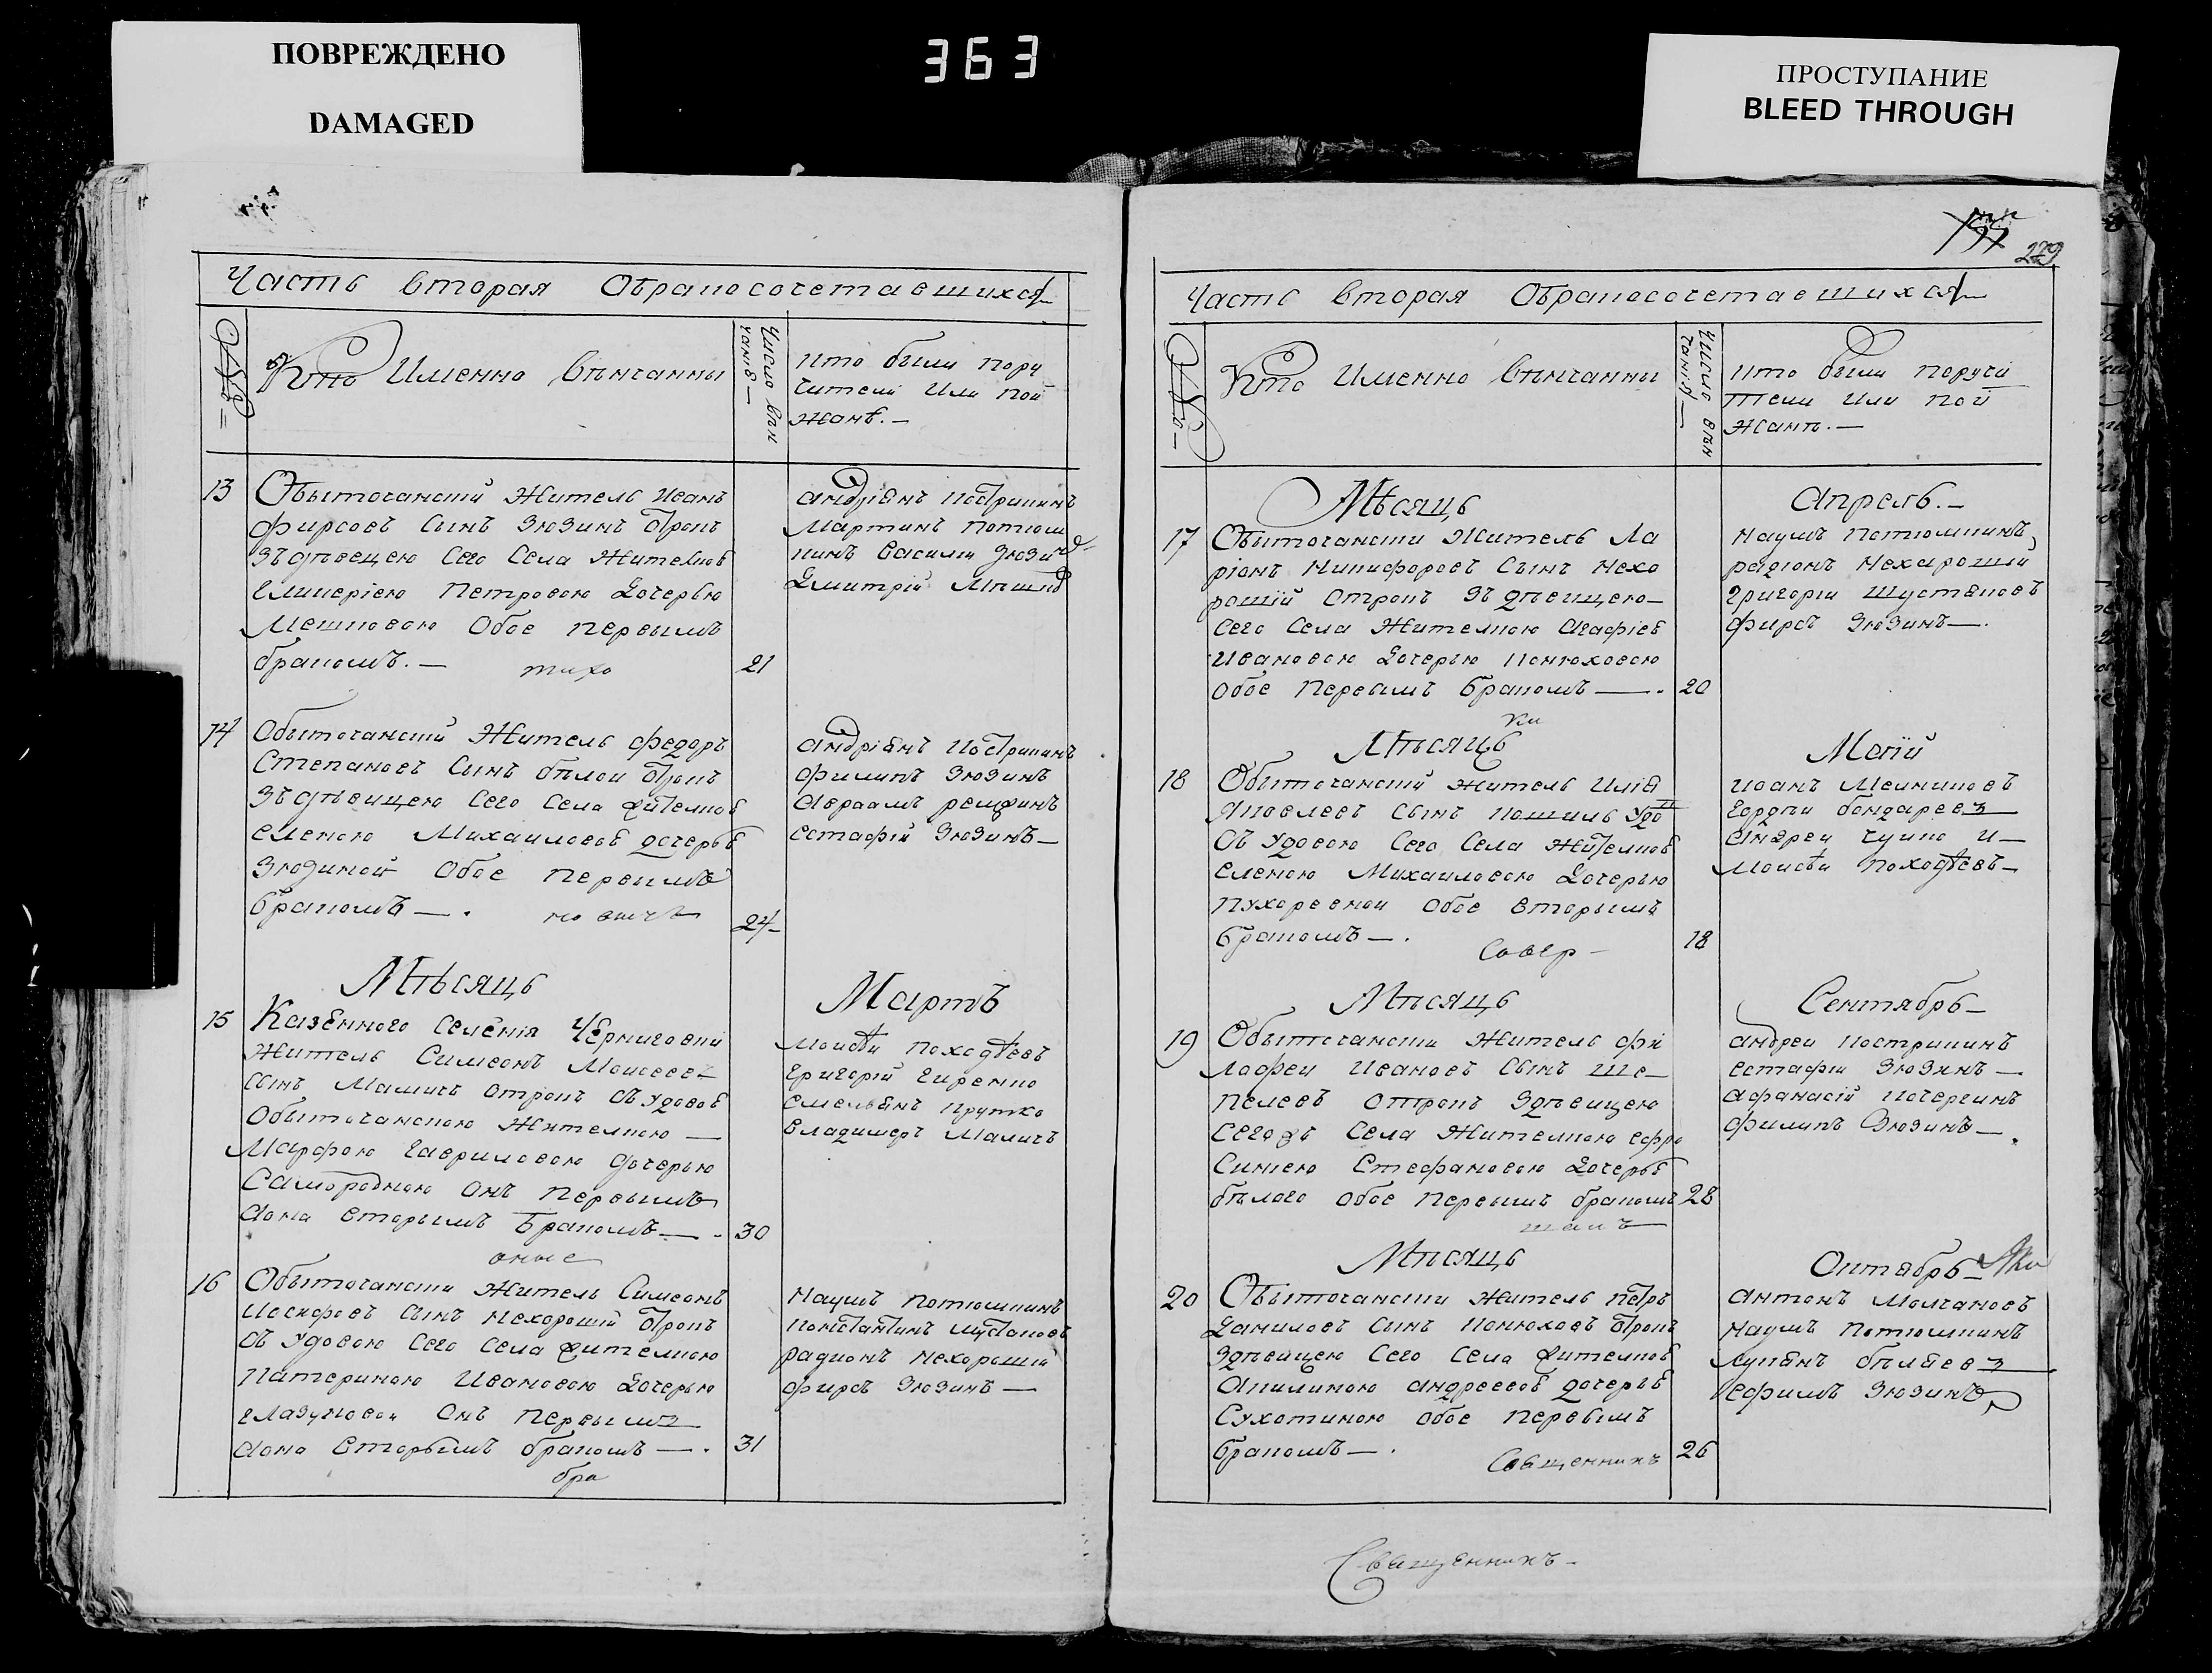 ПОВРЕЖДЕНО
DAMAGED
363
ПРОСТУПАНИЕ
BLEED THROUGH
279
Часть вторая Обракосочетавшихся
Кто Именно Вѣнчанны
Число вѣн
чанія
кто были пору
чители Или поѣ
жанѣ.—
13
Обыточанскій Житель Иванъ
Фирсовъ Сынъ Зюзинъ Отрокъ
Зъ дѣвецею Сего Села Жителкоѣ
Гликеріею Петровою Дочерью
Мешковою Обое первымъ
бракомъ.— тихо
21
андріянъ кострикинъ
Мартинъ потюм
кинъ василій Зюзин
Дмитрій
14
Обыточанскій Житель Федоръ
Степановъ Сынъ бѣлои Отрокъ
Зъ дѣвицею Сего Села жителкоѣ
Еленою Михаиловоѣ дочерьѣ
Зюзиной Обое первымъ
бракомъ—.
24
андріянъ кострикинъ
филипъ Зюзинъ
авраамъ
естафій Зюзинъ—
Мѣсяцъ
Мартъ
15
Казенного Селенія Черниговки
Житель Симеонъ Моисеевъ
Сынъ Маличъ отрокъ съ удовоѣ
Обыточанскою Жителкою—
Марфою Гавриловою дочерью
Самородною Онъ первымъ
аона вторымъ Бракомъ—.
оные
30
Моисѣи походѣевъ
григорій гиренко
емельянъ прутко
владимеръ Маличъ
16
Обыточански Житель Симеонъ
иосифовъ Сынъ Нехорошій Отрокъ
съ Удовою Сего Села жителкою
Катериною Ивановою Дочерью
глазуновои Онъ первымъ
аона вторымъ бракомъ—.
бра
31
Наумъ потюмкинъ
константинъ шустаковъ
радионъ нехорошій
фирсъ Зюзинъ—
Часть вторая Обракосочетавшихся
Кто Именно Вѣнчанны
Число вѣн
чанія—
кто были поручи
тели Или поѣ
жанѣ.—
Мѣсяцъ
Апрель.—
17
Обыточански Житель Ла
ріонъ Никифоровъ Сынъ Нехо
рошій Отрокъ Зъ дѣвицею—
Сего Села Жителкою Агафіеѣ
Ивановою Дочерью Конюховою
Обое Первымъ Бракомъ—.
ки
20
Наумъ Потюмкинъ
радіонъ Нехарошій
григорій шустаковъ
фирсъ Зюзинъ—.
Мѣсяцъ
Маій
18
Обыточанскій Житель Илія
Яковлевъ Сынъ кошиль Удо
Съ Удовою Сего Села Жителкоѣ
Еленою Михаиловою Дочерью
пухаревнои Обое вторымъ
бракомъ—.
Совер—
18
иванъ Мелниковъ
гордѣи бондаревъ
Андреи чуико и—
Моисѣи походѣевъ—
Мѣсяцъ
Сентябрь—
19
Обыточански Житель фи
лофеи Ивановъ Сынъ Ше—
пелевъ отрокъ Здѣвицею
Сегожъ Села Жителкою ефро
Синіею Стефановою Дочерьѣ
бѣлого обое первымъ бракомъ
шаль
28
андреи кострикинъ
естафіи Зюзинъ—
афанасій кочергинъ
филипъ Зюзинъ—.
Мѣсяцъ
Октябрь—
20
Обыточански Житель петръ
Даниловъ Сынъ Конюховъ Отрокъ
Здѣвицею Сего Села жителкоѣ
Акилиною андреевоѣ дочерьѣ
Сухотиною обое первымъ
бракомъ—.
Священникъ
26
антонъ Молчановъ
Наумъ Потюмкинъ
Лукянъ бѣляевъ
ефимъ Зюзинъ
Священникъ—